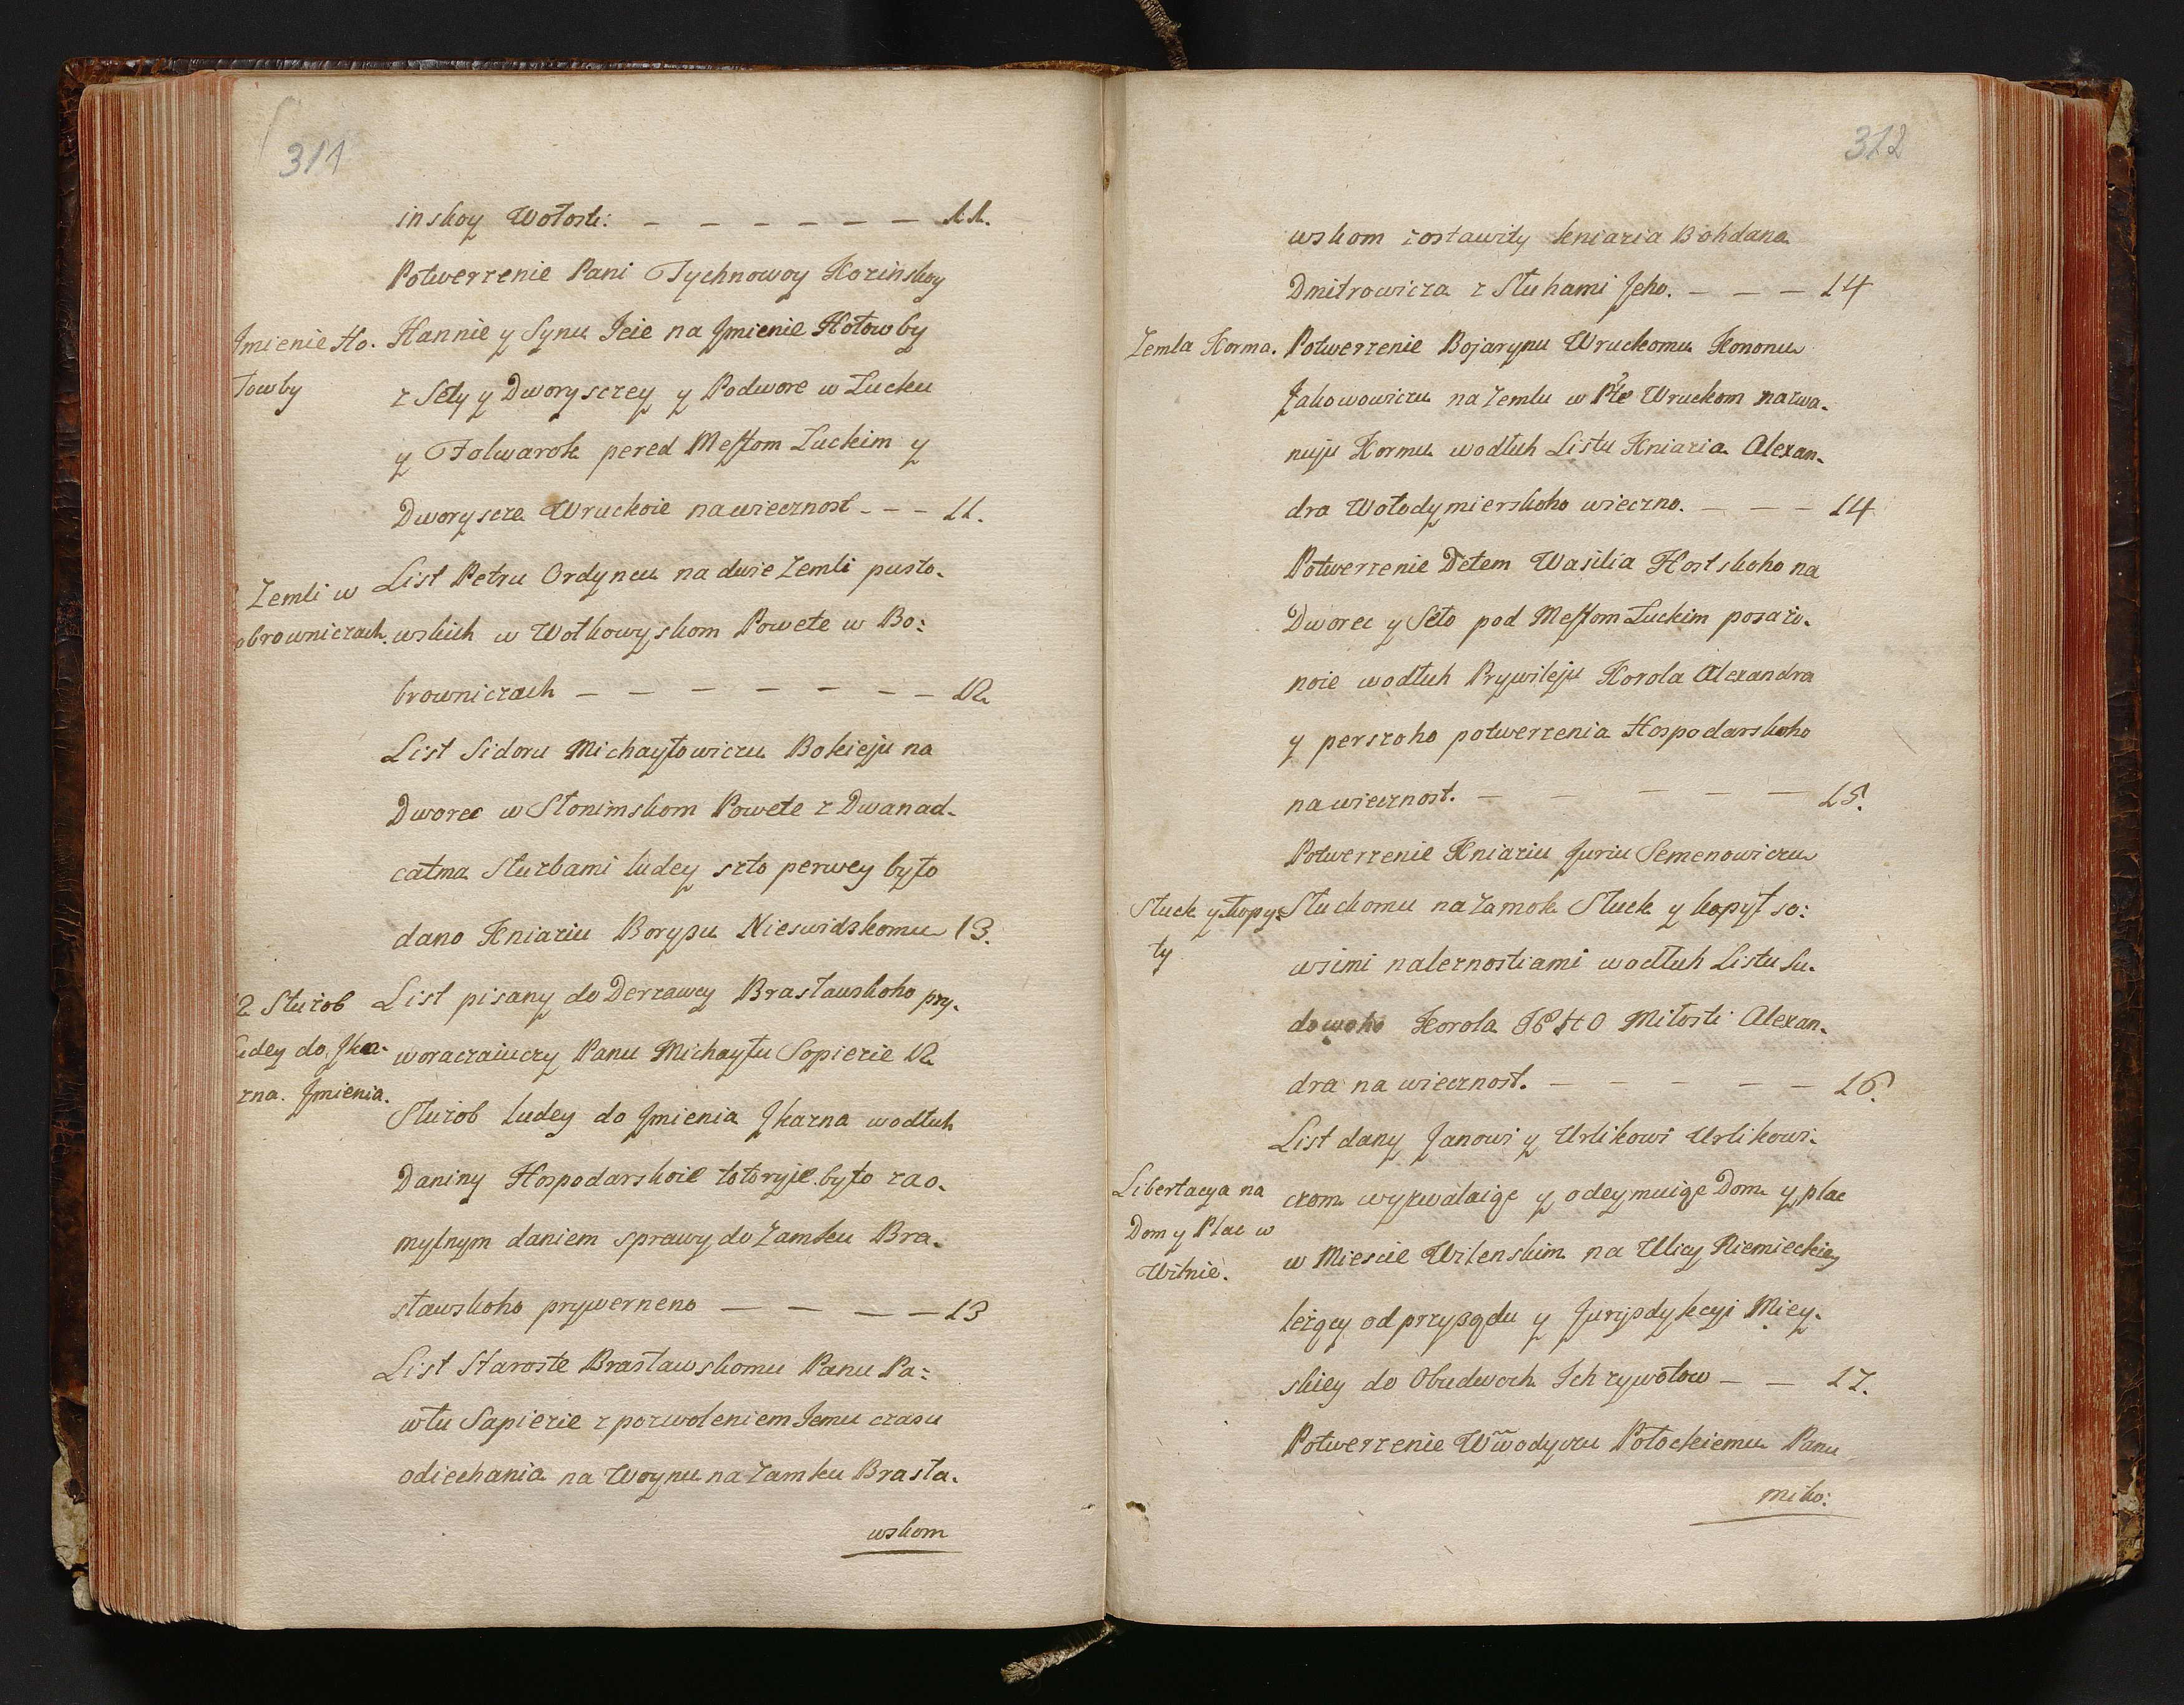 311
inskoy Wołosti: — — — — — — — 11.
Potwerzenie Pani Tychnowoy Kozinskoy
Imienie Ho- Hannie y Synu Jeie na Imienie Hołowby
łowby z Seły y Dworysczey y Podwore w Łucku
y Folwarok pered Mestom Łuckim y
Dworyscze Wruckoie na wiecznost - - - 11.
Zemli w List Petru Ordyncu na dwie Zemli pusto-
obrowniczach. wskich w Wołkowyskom Powete w Bo:
browniczach — — — — — — — 12
List Sidoru Michayłowiczu Bokieju na
Dworec w Słonimskom Powete z Dwanad-
catma Służbami ludey szto perwey było
dano Kniaziu Borysu Nieswidzkomu 13.
12 Służob List pisany do Derzawcy Brasławskoho pry-
Ludey do Ika- woraczaiuczy Panu Michayłu Sopiezie 12
zna. Imienia. Służob ludey do Imienia Ikazna wodłuh
Daniny Hospodarskoie totoryje było zao-
mylnym daniem sprawy do Zamku Bra-
sławskoho prywerneno — — — — 13
List Staroste Brasławskomu Panu Pa:
włu Sapiezie z pozwoleniem Jemu czasu
odiechania na Woynu na Zamku Brasła-
wskom
312
wskom zostawiły kniazia Bohdana
Dmitrowicza z Słuhami Jeho. — — — 14
Zemla Korma. Potwerzenie Bojarynu Wruckomu Kononu
Jakowowiczu na Zemlu w Pte Wruckom nazwa-
nuju Kormu wodłuh Listu Kniazia Alexan-
dra Wołodymierskoho wieczno. — — — 14
Potwerzenie Detem Wasilia Hostskoho na
Dworec y Seło pod Mestom Łuckim pozażo-
noie wodłuh Prywileju Korola Alexandra
y perszoho potwerzenia Hospodarskoho
na wiecznost. — — — — — 15.
Potwerzenie Kniaziu Juriu Semenowiczu
Słuck y Kopy: Słuckomu na Zamok Słuck y kopył so:
ty wsimi należnostiami wodłuh Listu Su-
dowoho Korola JEHO Miłosti Alexan-
dra na wiecznost. — — — — — 16.
List dany Janowi y Urlikowi Urlikowi-
Libertacya na czom wyzwalaiąc y odeymuiąc Dom y plac
Dom y Plac w w Miescie Wilenskim na Ulicy Niemieckiey
Wilnie. leżący od przysądu y Jurysdykcyi Miey-
skiey do Obudwoch Ich żywotow — — 17.
Potwerzenie Wwodyczu Połockiemu Panu
miko: